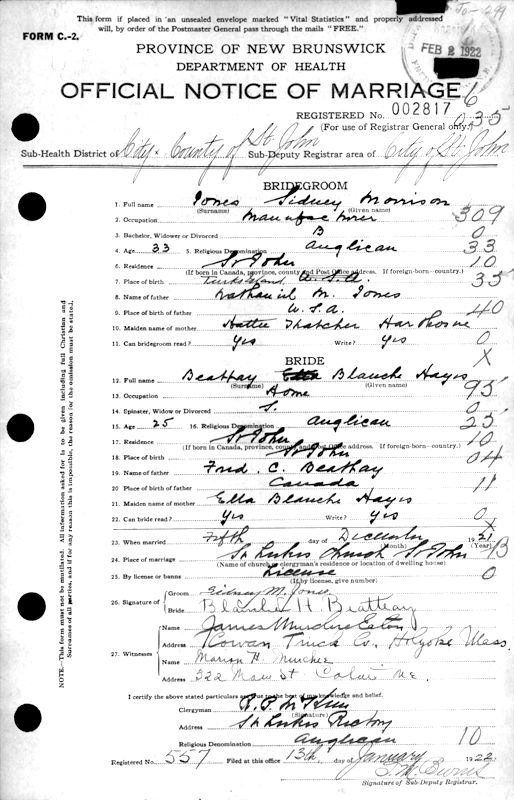 This form if placed in an unsealed envelope marked "Vital Statistics" and properly addressed
will, by order of the Postmaster General pass through the mails "FREE."
FORM C.-2.
FEB 2 1922
PROVINCE OF NEW BRUNSWICK
DEPARTMENT OF HEALTH
OFFICIAL NOTICE OF MARRIAGE
6
REGISTERED No. 002817 035
(For use of Registrar General only.)
Sub-Health District of City & County of St John Sub-Deputy Registrar area of City of St. John
BRIDEGROOM
1. Full name Jones Sidney Morrison
(Surname) (Given name)
2. Occupation Manufacturer 309
3. Bachelor, Widower or Divorced B 0
4. Age 33 5. Religious Denomination Anglican 33
6. Residence St John 10
(If born in Canada, province, county and Post Office address. If foreign-born, country.)
7. Place of birth U.S.A. 35
8. Name of father Nathaniel M. Jones
9. Place of birth of father U.S.A. 40
10. Maiden name of mother Hattie Thatcher
11. Can bridegroom read? Yes Write? Yes 0
X
BRIDE
12. Full name Beatteay Ella Blanche Hayes
(Surname) (Given name)
13. Occupation Home 95
14. Spinster, Widow or Divorced S. 0
15. Age 25 16. Religious Denomination Anglican 25
17. Residence St John 10
(If born in Canada, province, county and Post Office address. If foreign-born, country.)
18. Place of birth St John 04
19. Name of father Fred. C. Beatteay
20. Place of birth of father Canada 11
21. Maiden name of mother Ella Blanche Hayes
22. Can bride read? Yes Write? Yes 0
X
23. When married Fifth day of December 1921
(Month) (Year)
24. Place of marriage St Lukes Church St John
(Name of church or clergyman's residence or location of dwelling house)
25. By license or banns License 0
(If by license, give number)
26. Signature of
Groom Sidney M. Jones
Bride Blanche H Beatteay
27. Witnesses
Name James Murdoch Eaton
Address Cowan Truck Co, Holyoke Mass.
Name Marion H.
Address 322 Main St. Calais Me.
I certify the above stated particulars are true to the best of my knowledge and belief.
Clergyman
(Signature)
Address St Lukes Rectory
Religious Denomination Anglican 10
Registered No. 557 Filed at this office 13th day of January 1922
Signature of Sub-Deputy Registrar.
NOTE.—This form must not be mutilated. All information asked for is to be given including full Christian and
Surnames of all parties, and if for any reason this is impossible, the reason for the omission must be stated.